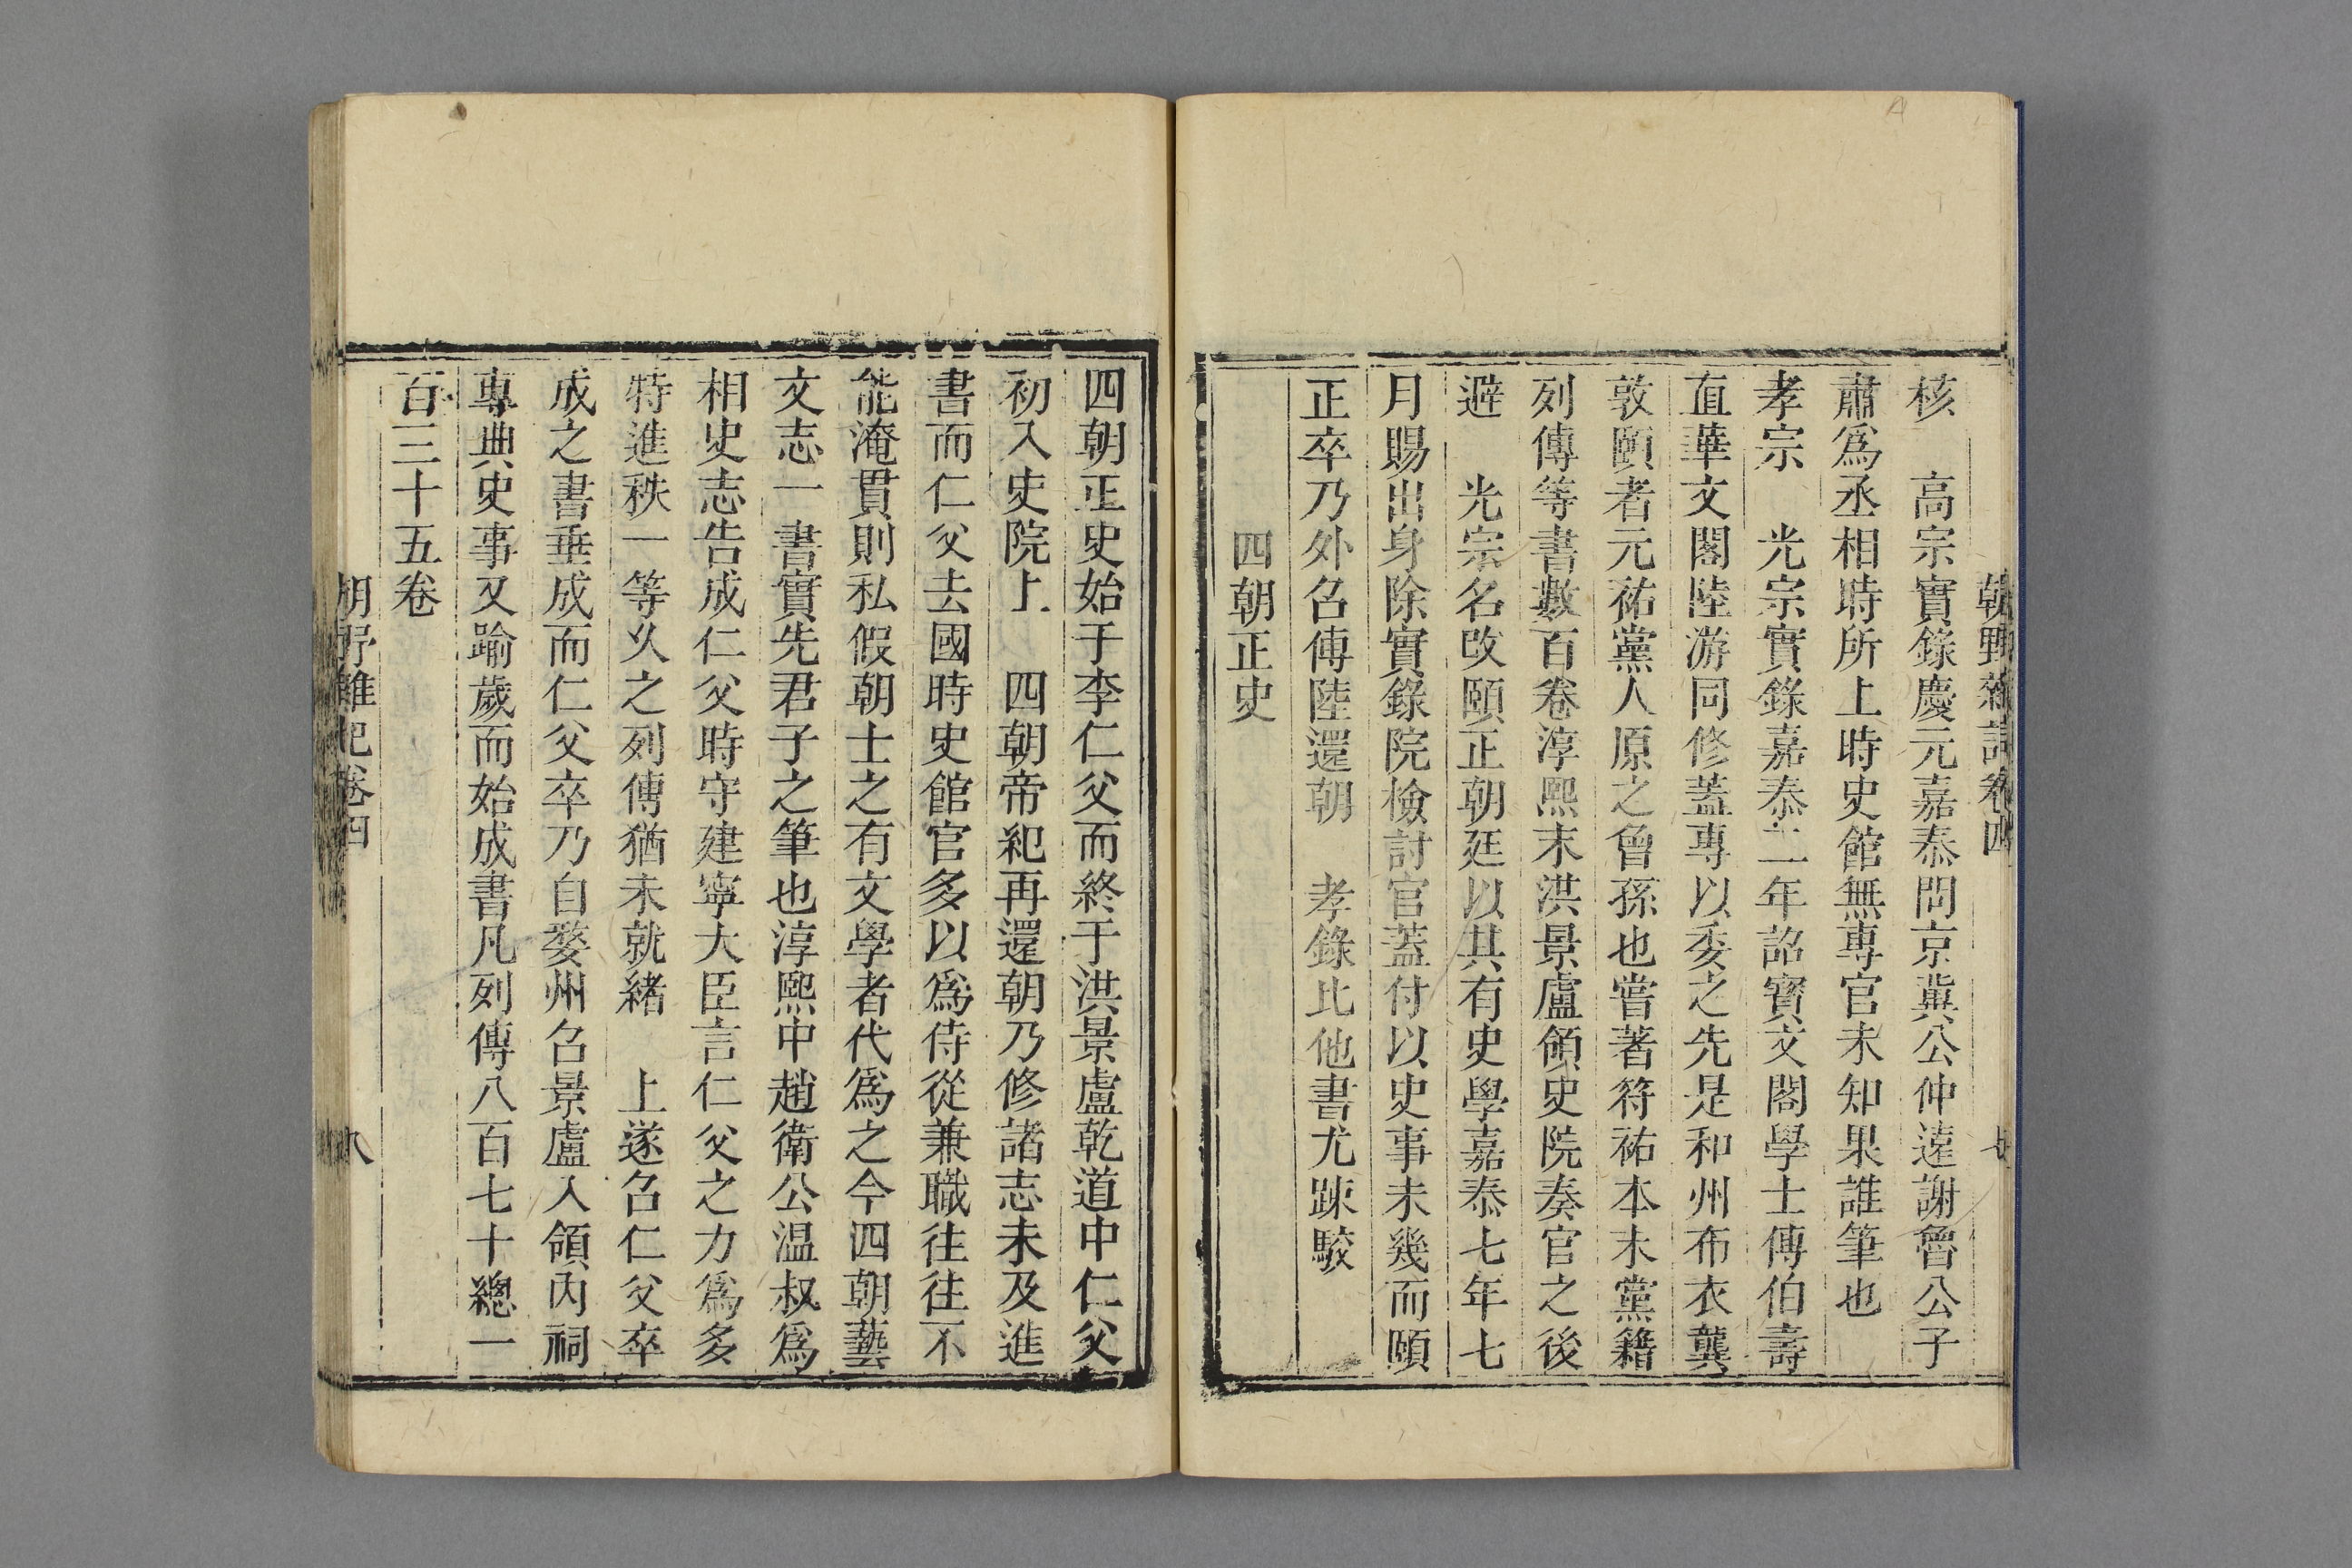 朝野雜記卷四
七
核　高宗實錄慶元嘉泰間京兾公仲遠謝魯公子
肅爲丞相時所上時史館無專官未知果誰筆也
孝宗　光宗實錄嘉泰二年詔寳文閣學士傅伯壽
直華文閣陸游同修蓋專以委之先是和州布衣龔
敦頤者元祐黨人原之曾孫也嘗著符祐本末黨籍
列傳等書數百卷淳熙末洪景盧領史院奏官之後
避　光宗名改頤正朝廷以其有史學嘉泰七年七
月賜出身除實錄院檢討官蓋付以史事未幾而頤
正卒乃外召傅陸還朝　孝錄比他書尤踈駮
四朝正史
四朝正史始于李仁父而終于洪景盧乾道中仁父
初入史院上　四朝帝紀再還朝乃修諸志未及進
書而仁父去國時史館官多以爲侍從兼職往往不
能淹貫則私假朝士之有文學者代爲之今四朝藝
文志一書實先君子之筆也淳熙中趙衛公温叔爲
相史志告成仁父時守建寧大臣言仁父之力爲多
特進秩一等乆之列傳猶未就緒　上遂召仁父卒
成之書垂成而仁父卒乃自婺州召景盧入領內祠
專典史事又踰歲而始成書凡列傳八百七十總一
百三十五卷
朝野雜記卷四
八